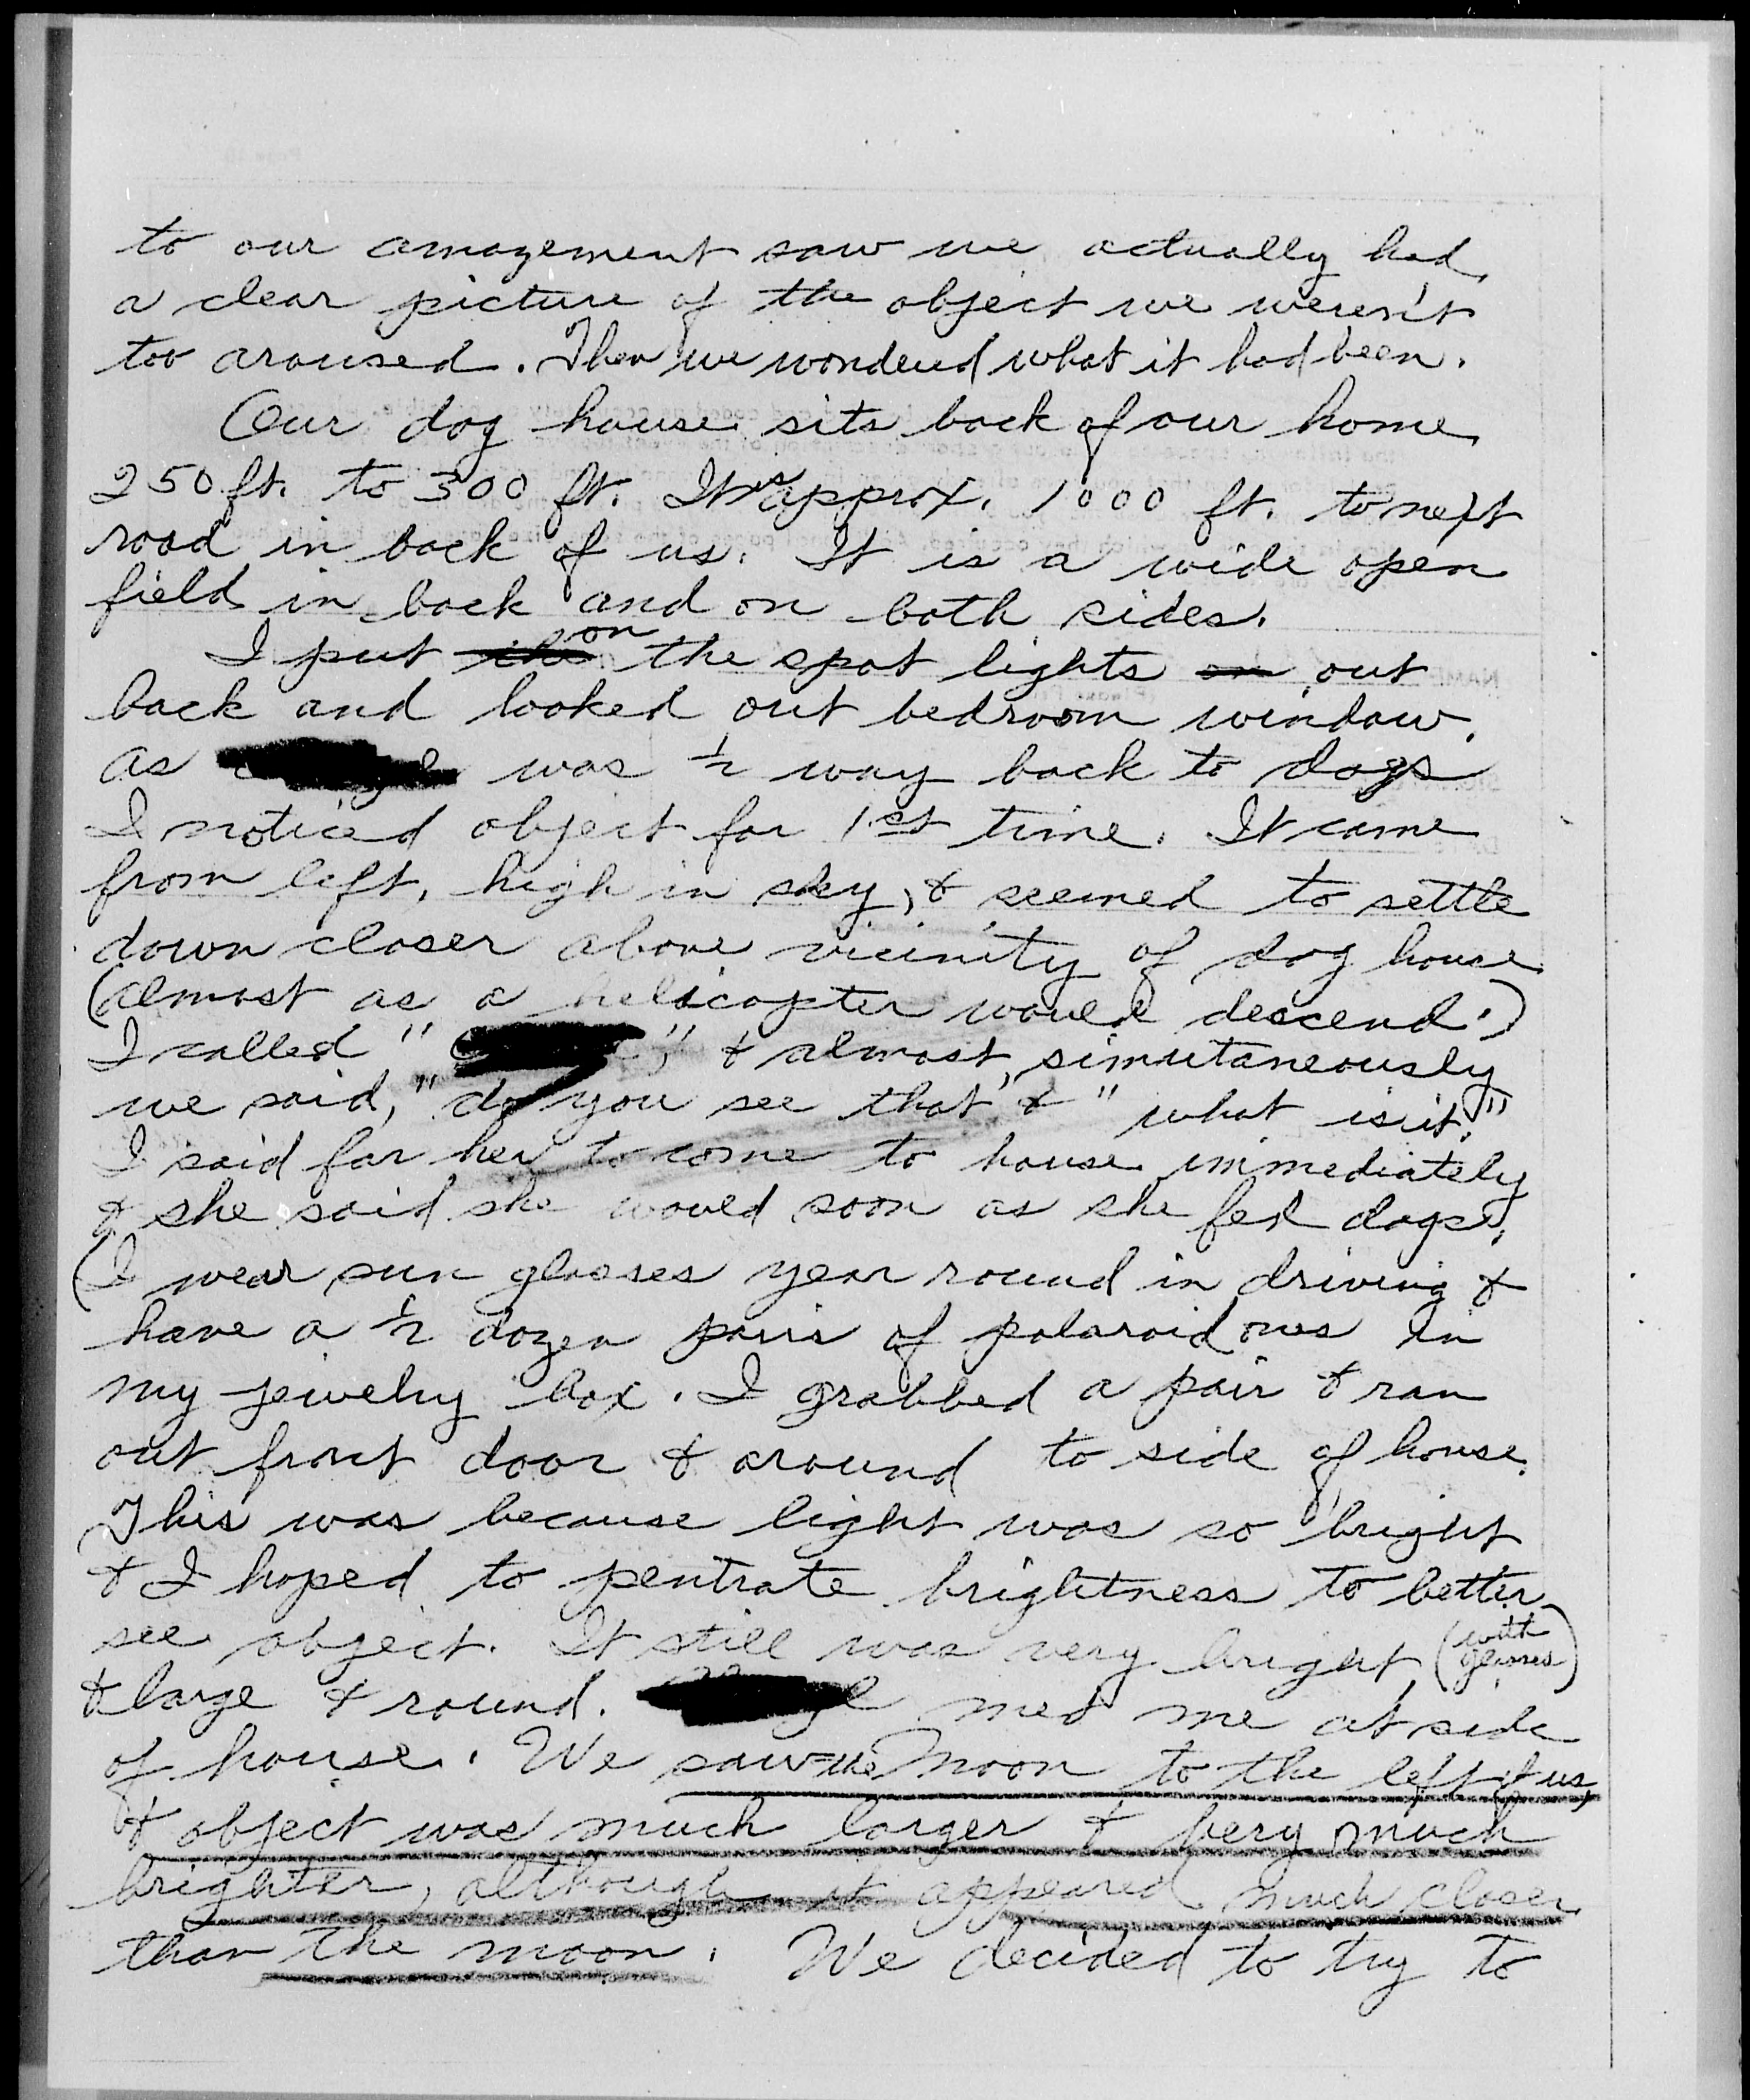 to our amazement saw we actually had
a clear picture of the object we weren't
too aroused. Then we wondered what it had been.
Our dog house sits back of our home
250 ft. to 300 ft. It is approx. 1000 ft. to next
road in back of us. It is a wide open
field in back and on both sides.
I put the on the spot lights on out
back and looked out bedroom window.
As was ½ way back to dogs
I noticed object for 1st time. It came
from left, high in sky, & seemed to settle
down closer above vicinity of dog house
(almost as a helicopter would descend.)
I called " ", & almost simutaneously
we said, "do you see that" & "what is it."
I said for her to come to house immediately
& she said she would soon as she fed dogs.
(I wear sun glasses year round in driving &
have a ½ dozen pairs of polaroid ones in
my jewelry box. I grabbed a pair & ran
out front door & around to side of house.
This was because light was so bright
& I hoped to pentrate brightness to better
see object. It still was very bright (with glasses)
& large & round. med me at side
of house. We saw the moon to the left of us,
& object was much larger & very much
brighter, although it appeared much closer
than the moon. We decided to try to